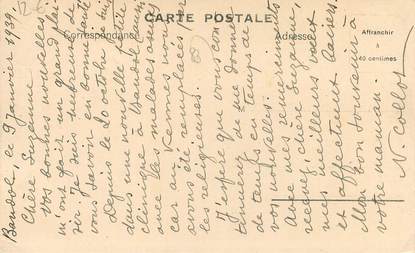 CARTE POSTALE
Correspondance
Adresse
Affranchir
à
40 centimes
Bandol, le 9 Janvier 1939
Chère Suzanne
Vos bonnes nouvelles
m'ont fait un grand plai-
sir je suis heureuse de
vous savoir en bonne santé
Depuis le 20 octobre je suis
dans une nouvelle petite
clinique à Bandol
avec les malades
car au Rennes nous
avons été remplacées par
les religieuses.
J'espère que vous con-
tinuerez de me donner
de temps en temps de
vos nouvelles.
Avec mes remerciements
recevez, chère Suzanne,
mes meilleurs voeux
et affectueux baisers.
Mon bon souvenir à
votre maman.
N. Collot